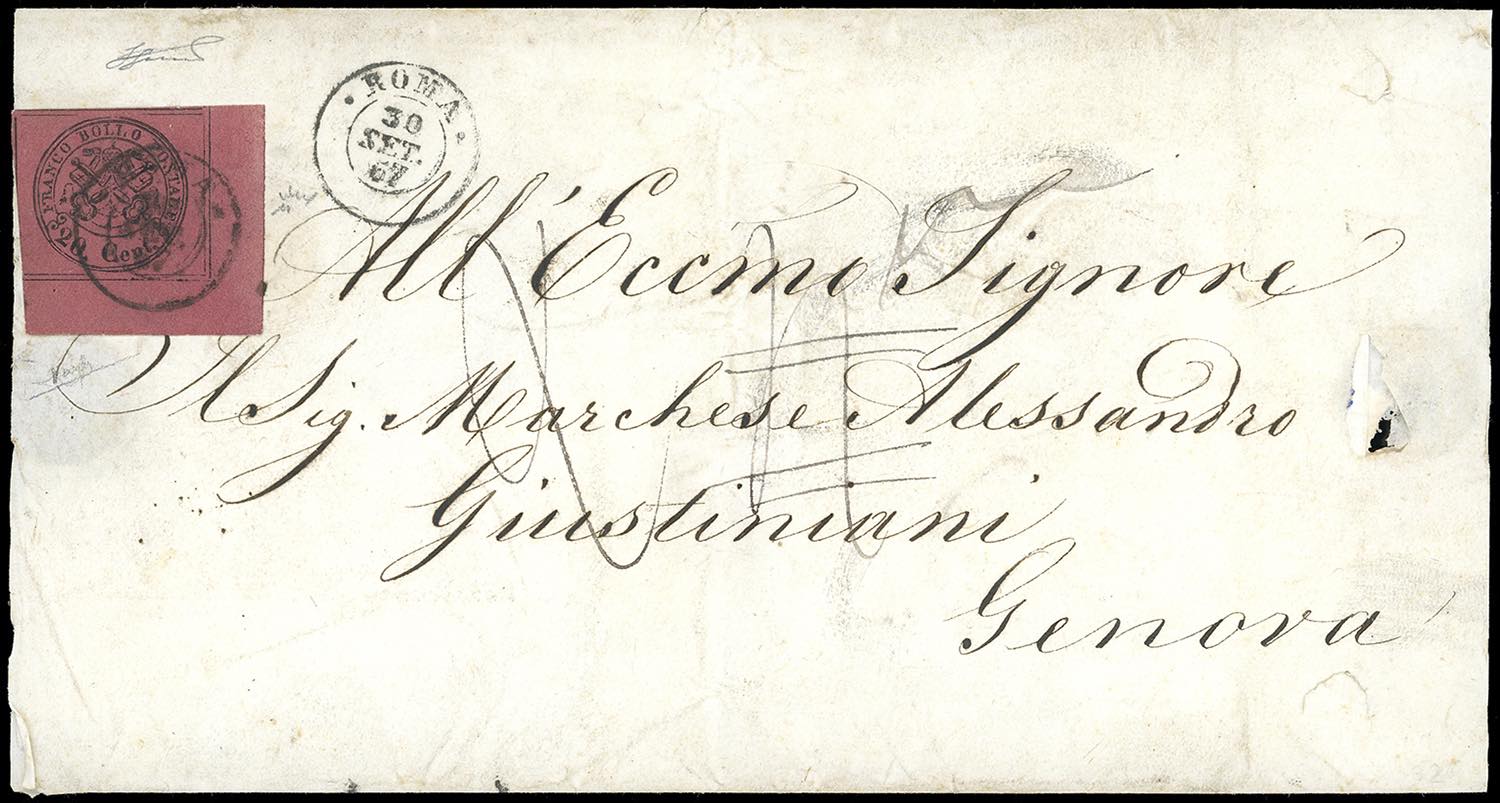 FRANCO BOLLO PONTIFICIO
20 Cent.
ROMA
30
SET.
67
All' Eccmo Signore
Il Sig. Marchese Alessandro
Giustiniani
Genova